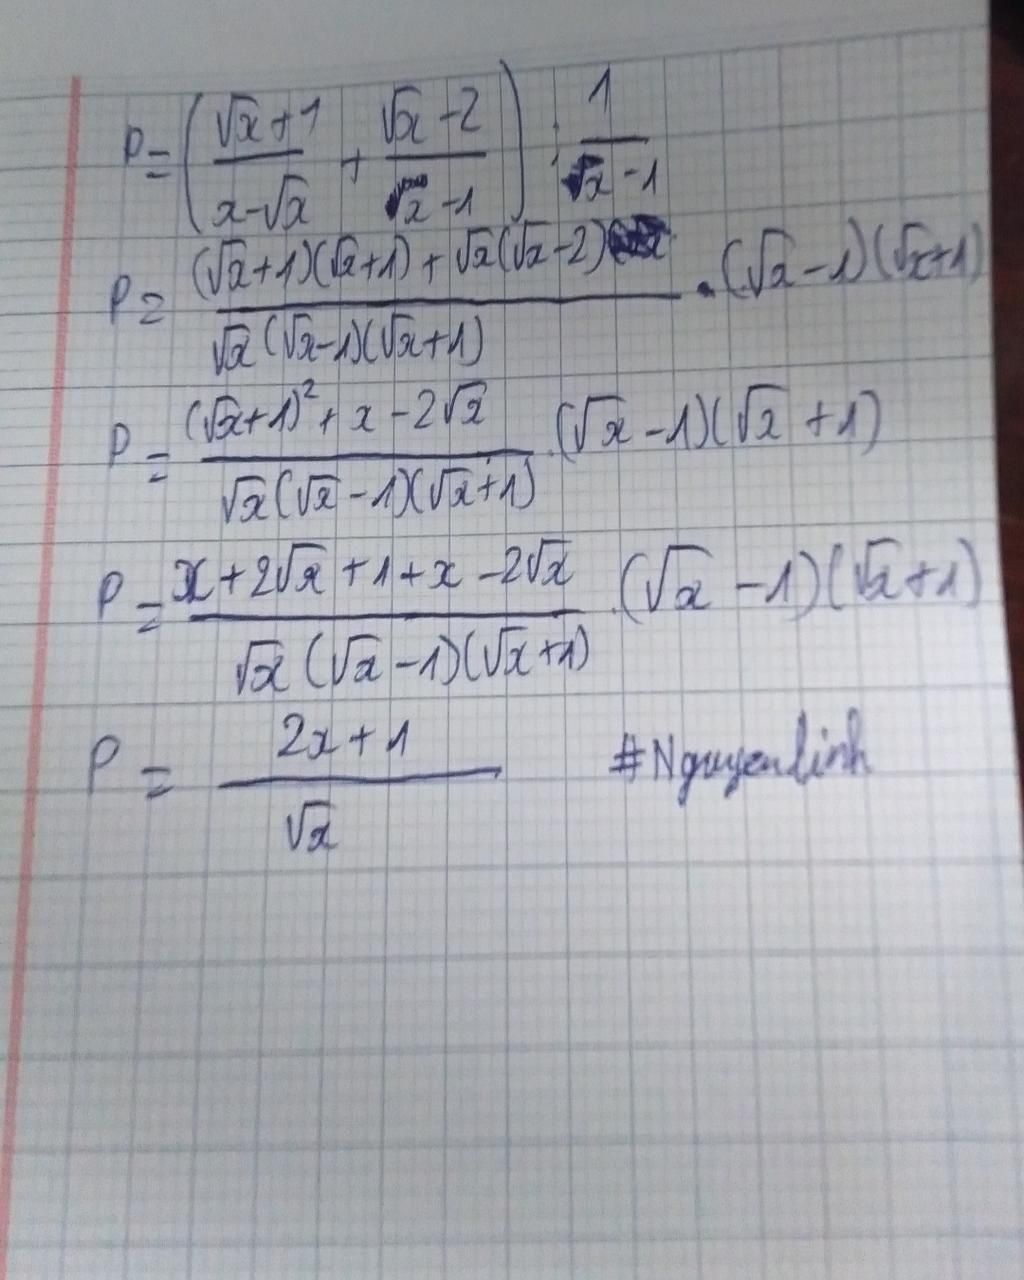 P = ( (√x+1)/(x-√x) + (√x-2)/(√x-1) ) : 1/(√x-1)
P = ((√x+1)(√x+1) + √x(√x-2))/(√x(√x-1)(√x+1)) . (√x-1)(√x+1)
P = ((√x+1)² + x - 2√x)/(√x(√x-1)(√x+1)) . (√x-1)(√x+1)
P = (x+2√x+1+x-2√x)/(√x(√x-1)(√x+1)) . (√x-1)(√x+1)
P = (2x+1)/√x #Nguyenlinh